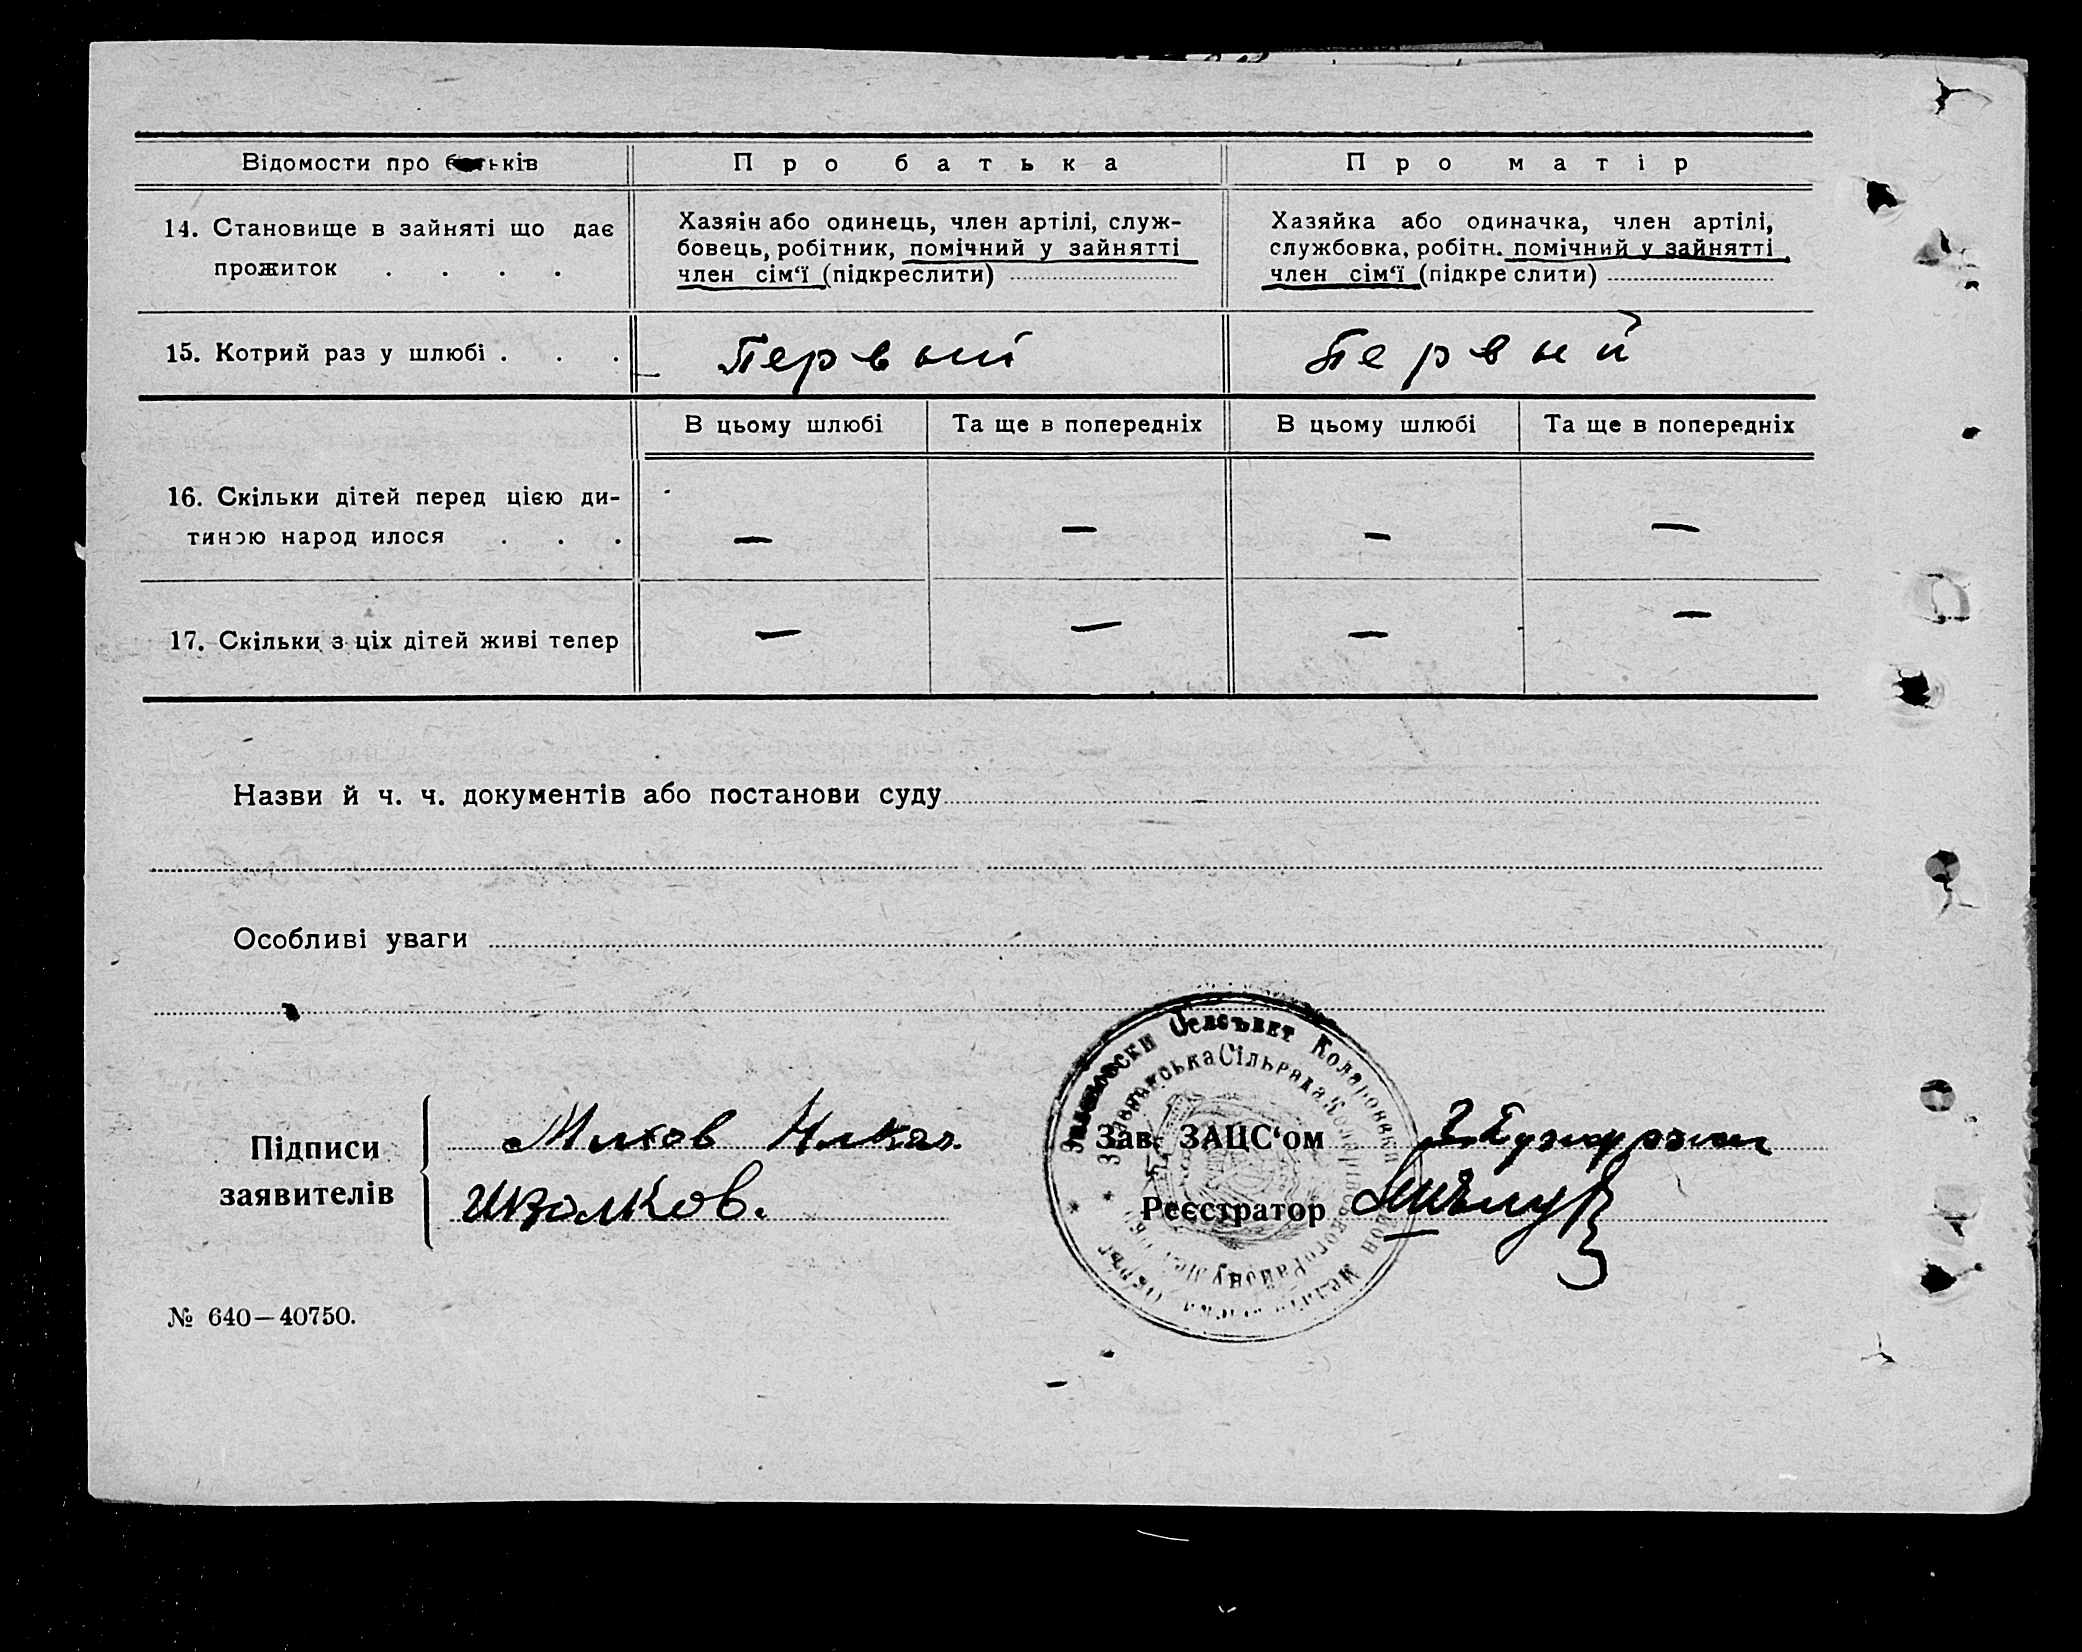 Відомости про батьків
Про батька
Про матір
14. Становище в зайняті що дає
прожиток . . . .
Хазяїн або одинець, член артілі, служ-
бовець, робітник, помічний у зайнятті
член сім‘ї (підкреслити)
Хазяйка або одиначка, член артілі,
службовка, робітн. помічний у зайнятті
член сім‘ї (підкре слити)
15. Котрий раз у шлюбі . . .
Первый
Первый
В цьому шлюбі
Та ще в попередніх
В цьому шлюбі
Та ще в попередніх
16. Скільки дітей перед цією ди-
тиною народ илося . . .
— — — —
17. Скільки з ціх дітей живі тепер
— — — —
Назви й ч. ч. документів або постанови суду
Особливі уваги
Селсъвет Коларовски
Сільрада
Району
Підписи
заявителів
Милков
Иволков.
Зав. ЗАЦС‘ом
Реєстратор
№ 640—40750.